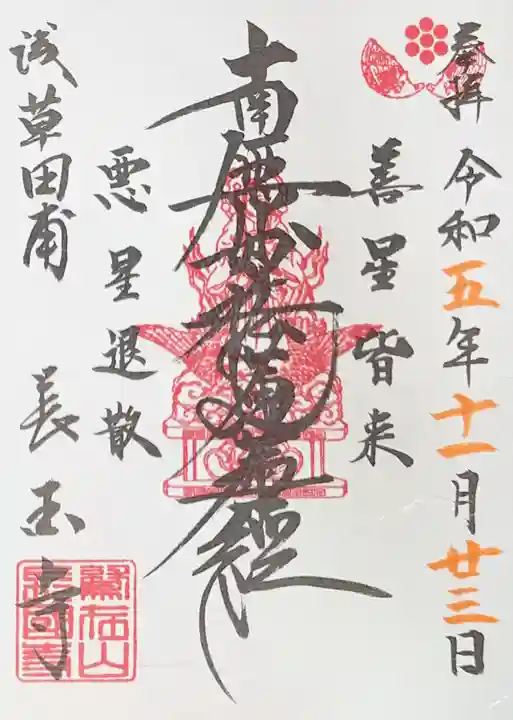 奉拝 令和五年十一月廿三日
善星皆来
南無妙法蓮華経
悪星退散
浅草田甫 長国寺
鷲在山長国寺